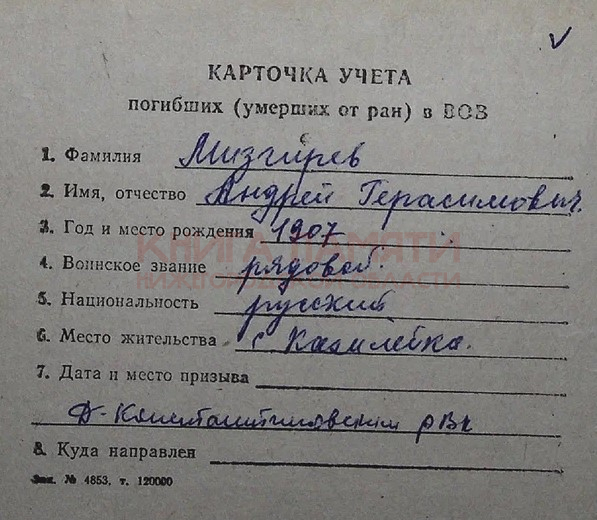 КАРТОЧКА УЧЕТА
погибших (умерших от ран) в ВОВ
1. Фамилия Мизгирев
2. Имя, отчество Андрей Герасимович.
3. Год и место рождения 1907
КНИГА ПАМЯТИ
4. Воинское звание рядовой.
НИЖЕГОРОДСКОЙ ОБЛАСТИ
5. Национальность русский
6. Место жительства с. Казилейка.
7. Дата и место призыва
Д-Константиновским РВК
8. Куда направлен
Зак. № 4853, т. 120000